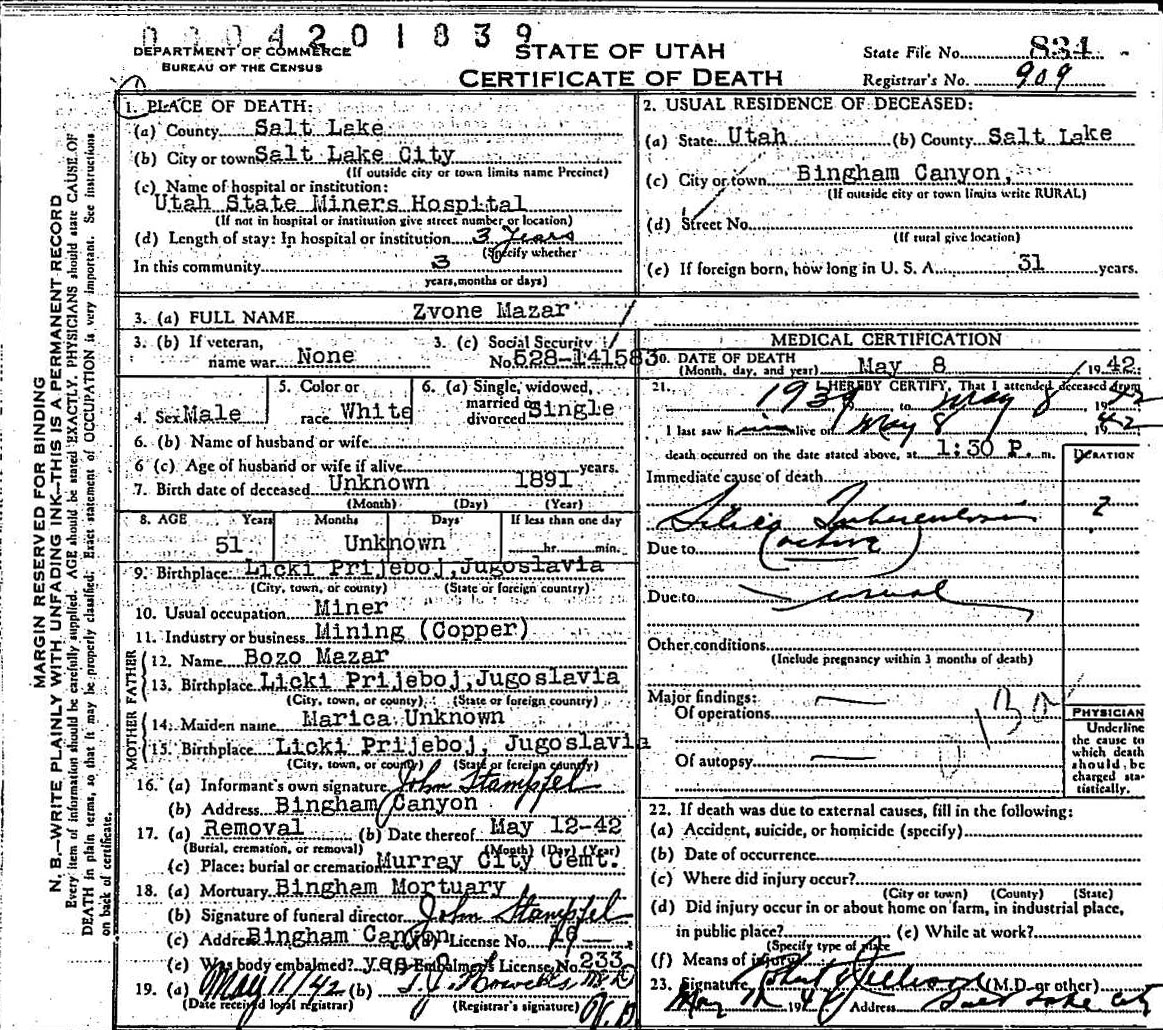 0304201839
DEPARTMENT OF COMMERCE
BUREAU OF THE CENSUS
STATE OF UTAH
CERTIFICATE OF DEATH
State File No. 834
Registrar's No. 909
MARGIN RESERVED FOR BINDING
N. B.—WRITE PLAINLY WITH UNFADING INK—THIS IS A PERMANENT RECORD
Every item of information should be carefully supplied. AGE should be stated EXACTLY. PHYSICIANS should state CAUSE OF
DEATH in plain terms, so that it may be properly classified. Exact statement of OCCUPATION is very important. See instructions
on back of certificate.
1. PLACE OF DEATH:
(a) County Salt Lake
(b) City or town Salt Lake City
(If outside city or town limits name Precinct)
(c) Name of hospital or institution:
Utah State Miners Hospital
(If not in hospital or institution give street number or location)
(d) Length of stay: In hospital or institution 3 Years
(Specify whether
In this community 3
years, months or days)
2. USUAL RESIDENCE OF DECEASED:
(a) State Utah (b) County Salt Lake
(c) City or town Bingham Canyon,
(If outside city or town limits write RURAL)
(d) Street No.
(If rural give location)
(e) If foreign born, how long in U. S. A. 31 years.
3. (a) FULL NAME Zvone Mazar
3. (b) If veteran, name war None
3. (c) Social Security No. 528-141583
4. Sex Male
5. Color or race White
6. (a) Single, widowed, married or divorced Single
6. (b) Name of husband or wife
6 (c) Age of husband or wife if alive years.
7. Birth date of deceased Unknown 1891
(Month) (Day) (Year)
8. AGE Years Months Days If less than one day
51 Unknown hr. min.
9. Birthplace Licki Prijeboj, Jugoslavia
(City, town, or county) (State or foreign country)
10. Usual occupation Miner
11. Industry or business Mining (Copper)
FATHER
12. Name Bozo Mazar
13. Birthplace Licki Prijeboj, Jugoslavia
(City, town, or county) (State or foreign country)
MOTHER
14. Maiden name Marica Unknown
15. Birthplace Licki Prijeboj, Jugoslavia
(City, town, or county) (State or foreign country)
16. (a) Informant's own signature John Stampfel
(b) Address Bingham Canyon
17. (a) Removal (b) Date thereof May 12-42
(Burial, cremation, or removal) (Month) (Day) (Year)
(c) Place: burial or cremation Murray City Cemt.
18. (a) Mortuary Bingham Mortuary
(b) Signature of funeral director John Stampfel
(c) Address Bingham Canyon License No. 49
(e) Was body embalmed? yes Embalmer's License No. 233
19. (a) May 11/42 (b)
(Date received local registrar) (Registrar's signature)
MEDICAL CERTIFICATION
20. DATE OF DEATH May 8 1942
(Month, day, and year)
21. I HEREBY CERTIFY, That I attended deceased from
1939 to May 8 1942
I last saw him alive on May 8 1942
death occurred on the date stated above, at 1:30 P. m.
DURATION
Immediate cause of death
Silico Tuberculosis
?
Due to (active)
Due to
Other conditions
(Include pregnancy within 3 months of death)
Major findings:
Of operations
Of autopsy
PHYSICIAN
Underline
the cause to
which death
should be
charged sta-
tistically.
22. If death was due to external causes, fill in the following:
(a) Accident, suicide, or homicide (specify)
(b) Date of occurrence
(c) Where did injury occur?
(City or town) (County) (State)
(d) Did injury occur in or about home on farm, in industrial place,
in public place? (e) While at work?
(Specify type of place
(f) Means of injury
23. Signature (M.D. or other)
May 11 194 Address Salt Lake City